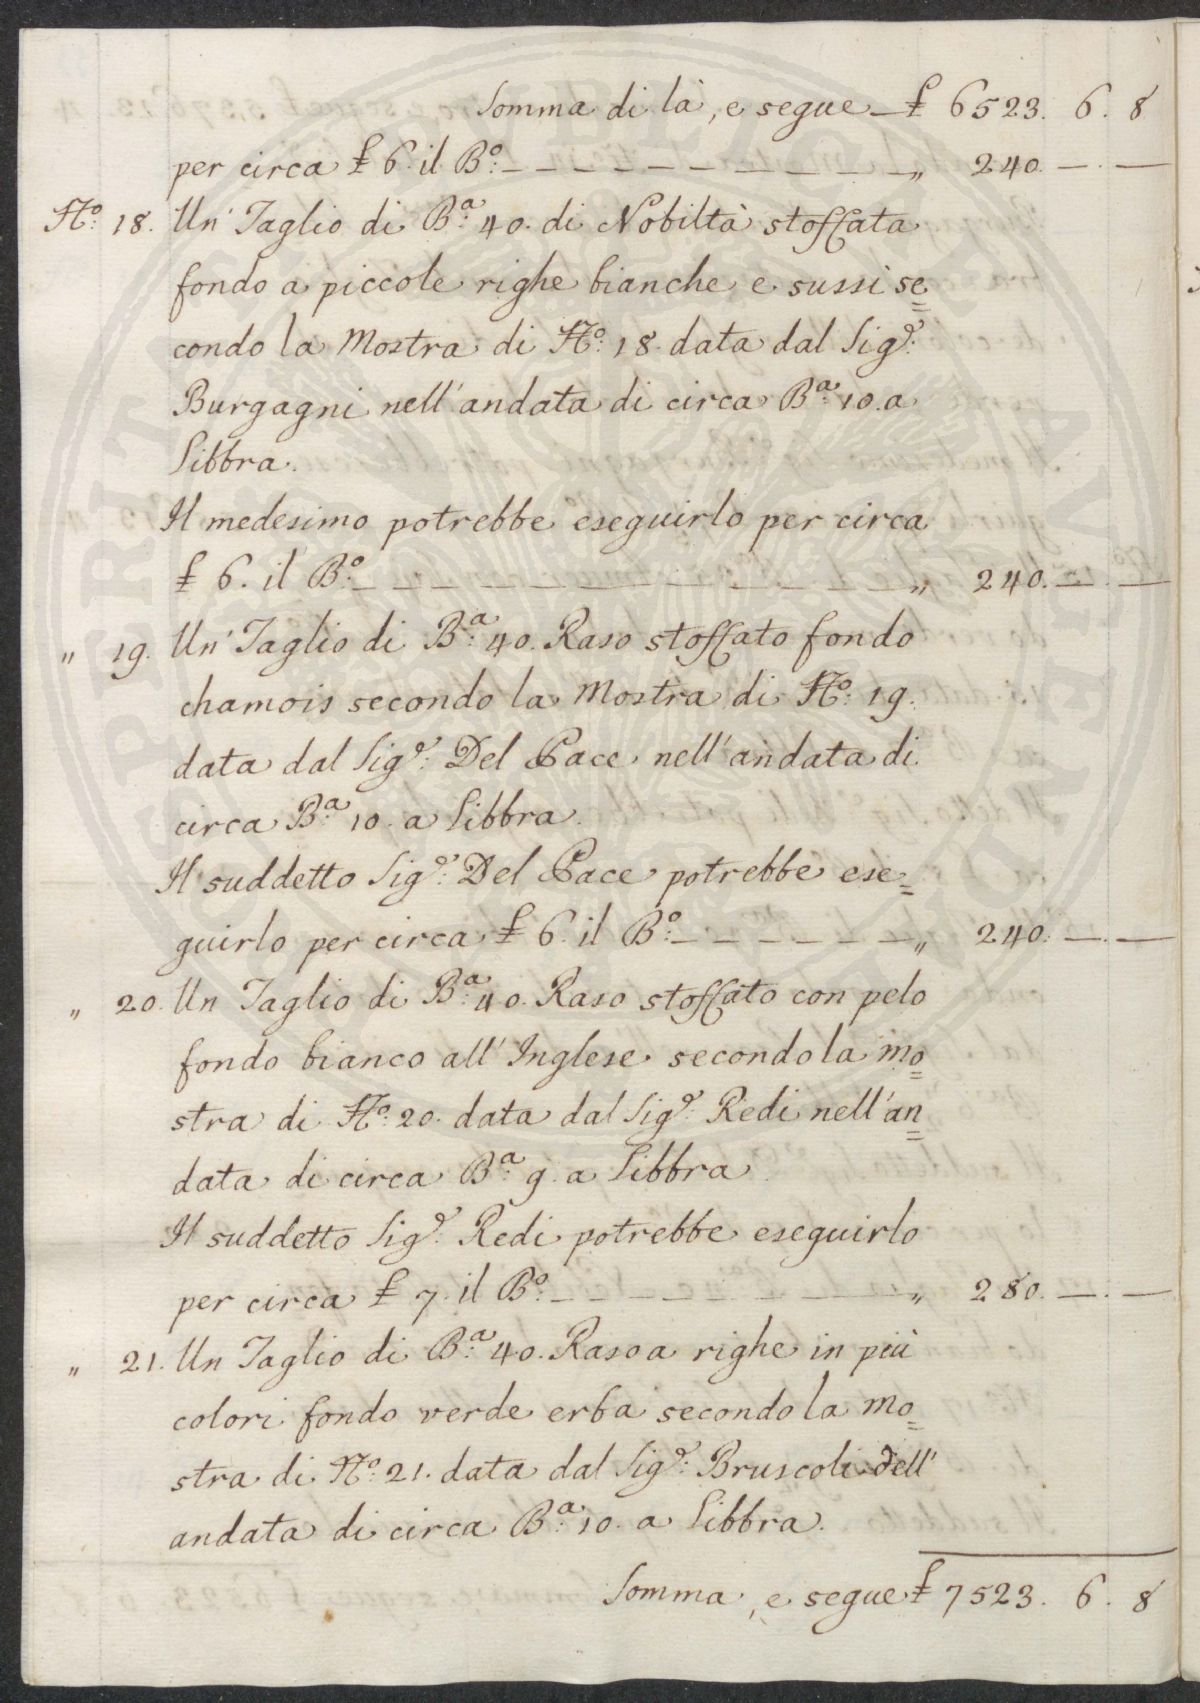 Somma di là, e segue £ 6523. 6. 8
per circa £ 6. il B.o — — — — — — — — — „ 240. — . —
N.o 18. Un' Taglio di B.a 40. di Nobiltà stoffata
fondo a piccole righe bianche e sussi se=
condo la Mostra di N.o 18. data dal Sig.r
Burgagni nell'andata di circa B.a 10. a
Libbra.
Il medesimo potrebbe eseguirlo per circa
£ 6. il B.o — — — — — — — — — — — „ 240. — . —
„ 19. Un' Taglio di B.a 40. Raso stoffato fondo
chamois secondo la Mostra di N.o 19.
data dal Sig.r Del Pace nell'andata di
circa B.a 10. a Libbra.
Il suddetto Sig.r Del Pace potrebbe ese=
guirlo per circa £ 6. il B.o — — — — — — „ 240. — . —
„ 20. Un Taglio di B.a 40. Raso stoffato con pelo
fondo bianco all'Inglese secondo la mo=
stra di N.o 20. data dal Sig.r Redi nell'an=
data di circa B.a 9. a Libbra
Il suddetto Sig.r Redi potrebbe eseguirlo
per circa £ 7. il B.o — — — — — — — — „ 280. — . —
„ 21. Un Taglio di B.a 40. Raso a righe in più
colori fondo verde erba secondo la mo=
stra di N.o 21. data dal Sig.r Bruscoli dell'
andata di circa B.a 10. a Libbra.
Somma, e segue £ 7523. 6. 8